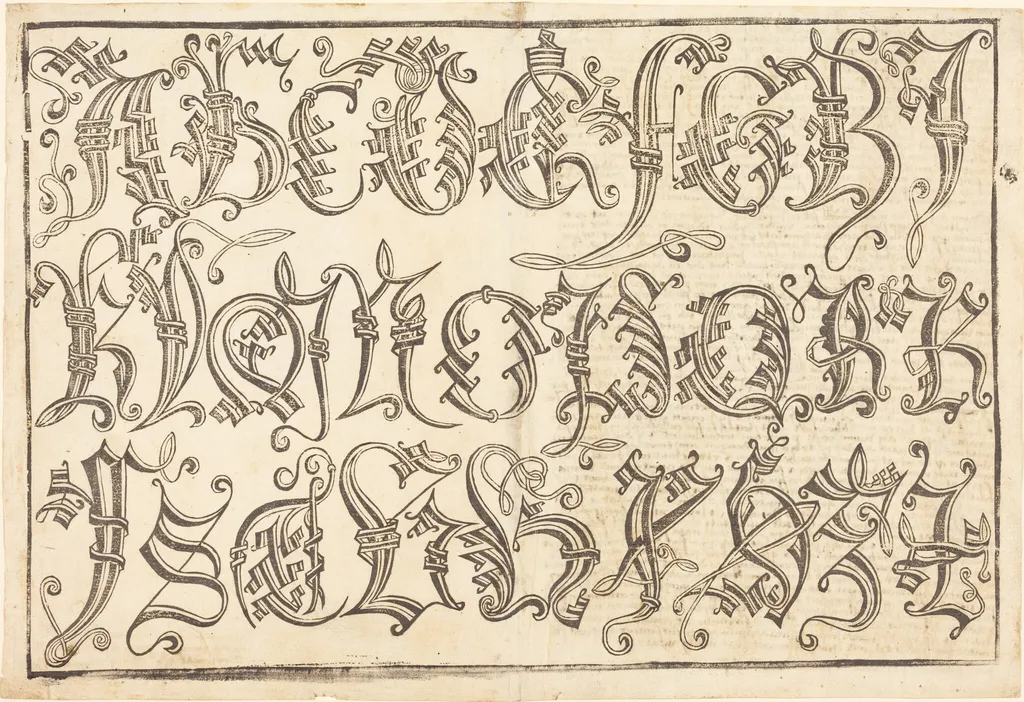 A B C D E F G H I
K L M N O P Q R R
S S T V W X Y Z